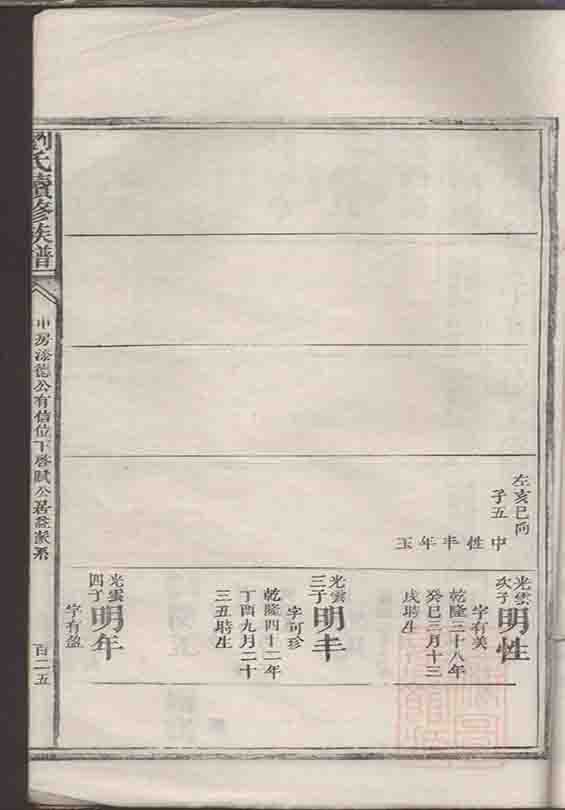 左亥巳向
子五
中性丰年玉
光雲
次子
明性
字有美
乾隆三十八年
癸巳三月十三
戌時生
光雲
三子
明丰
字可珍
乾隆四十二年
丁酉九月二十
三丑時生
光雲
四子
明年
字有盈
劉氏續修族譜
中房添德公有信位下啓賦公
百二五